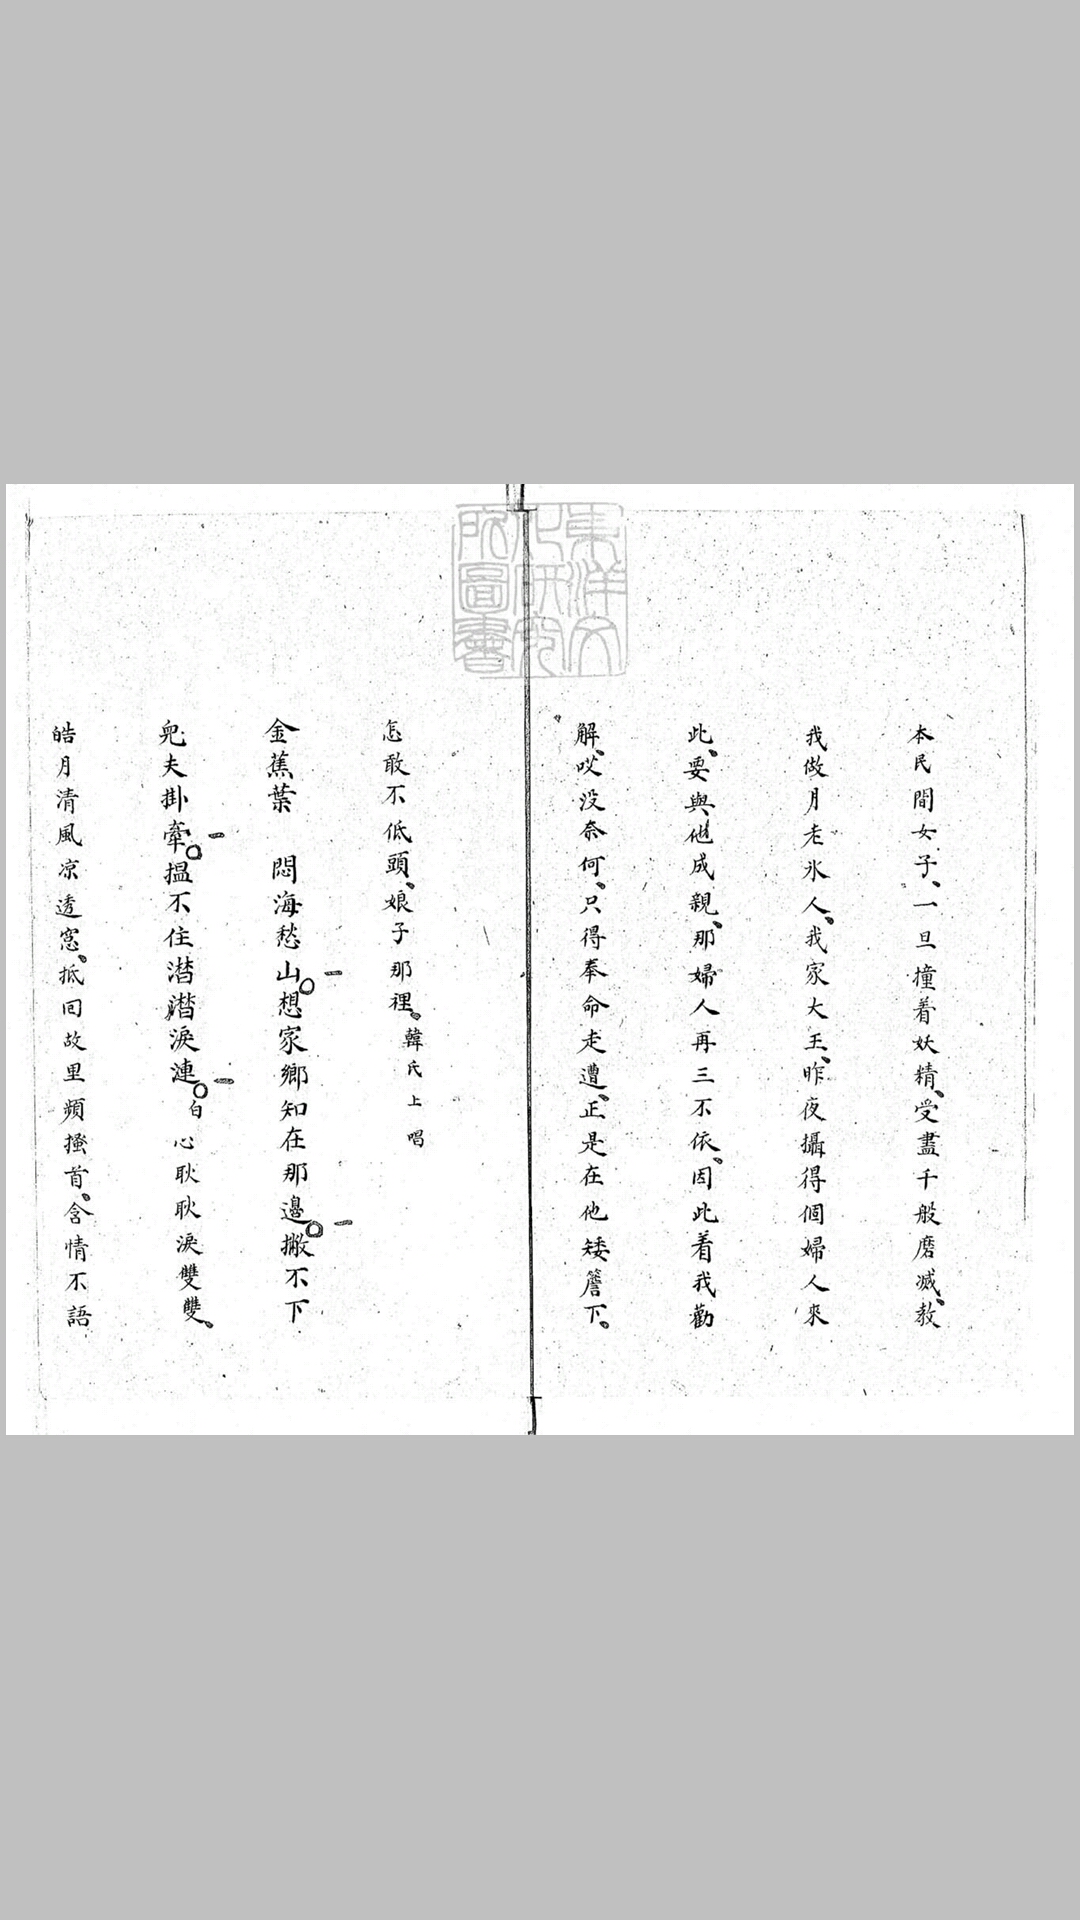 本民間女子、一旦撞着妖精、受盡千般磨滅、教
我做月老氷人、我家大王、昨夜攝得個婦人來
此、要與他成親、那婦人再三不依、因此着我勸
解、哎没奈何、只得奉命走遭、正是在他矮簷下、
怎敢不低頭、娘子那裡、韓氏上唱
金蕉葉 悶海愁山○想家鄉知在那邉○撇不下
兒夫掛牽○搵不住潸潸淚漣○白心耿耿淚雙雙、
皓月清風凉透窓、抵回故里頻搔首、含情不語
東洋文化研究所圖書